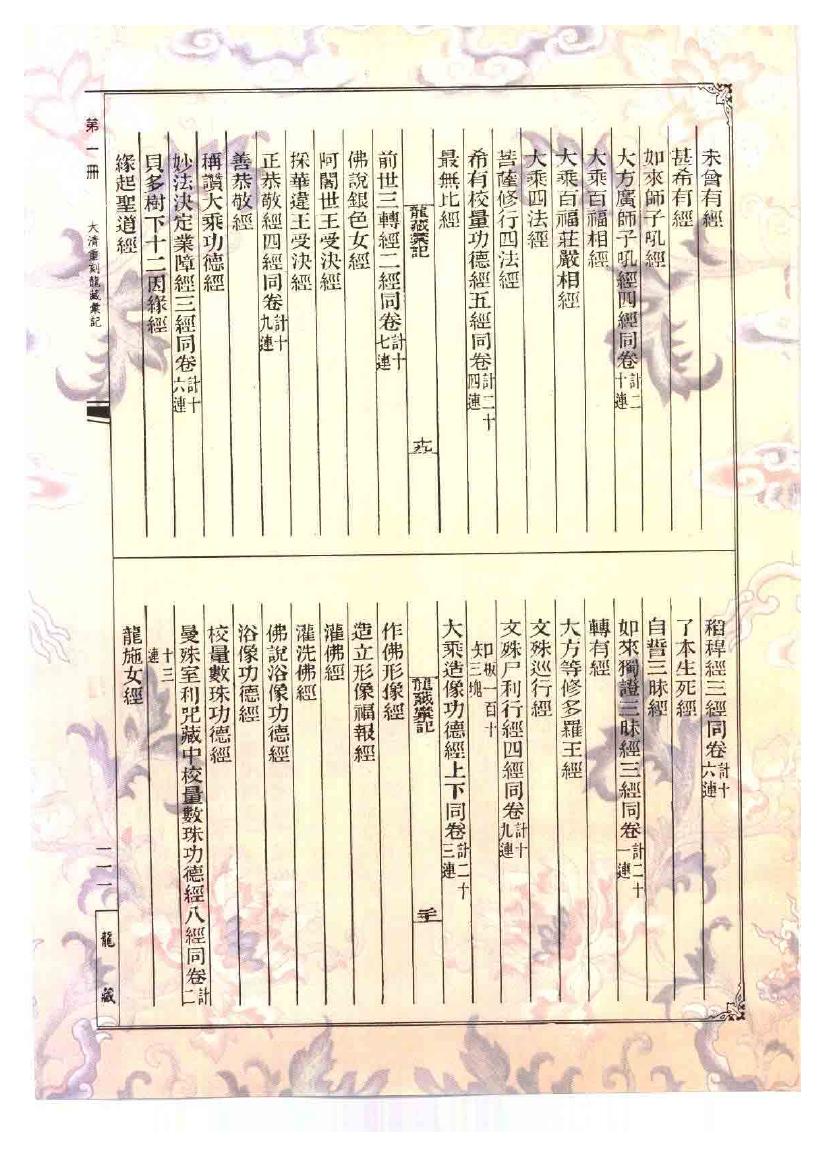 未曾有經
甚希有經
如來師子吼經
大方廣師子吼經四經同卷計二十連
大乘百福相經
大乘百福莊嚴相經
大乘四法經
菩薩修行四法經
希有校量功德經五經同卷計二十四連
最無比經
龍藏彙記
十九
前世三轉經二經同卷計十七連
佛說銀色女經
阿闍世王受決經
採華違王受決經
正恭敬經四經同卷計十九連
善恭敬經
稱讚大乘功德經
妙法決定業障經三經同卷計十六連
貝多樹下十二因緣經
緣起聖道經
稻稈經三經同卷計十六連
了本生死經
自誓三昧經
如來獨證三昧經三經同卷計二十一連
轉有經
大方等修多羅王經
文殊巡行經
文殊尸利行經四經同卷計十九連
知板一百十三塊
大乘造像功德經上下同卷計二十三連
龍藏彙記
二十
作佛形像經
造立形像福報經
灌佛經
灌洗佛經
佛說浴像功德經
浴像功德經
校量數珠功德經
曼殊室利咒藏中校量數珠功德經八經同卷計二
十三連
龍施女經
第一冊
大清重刻龍藏彙記
一一一
龍藏